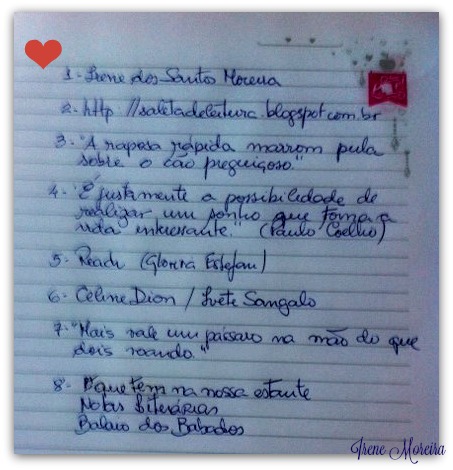 1- Irene dos Santos Moreira
2- http://saletadeleitura.blogspot.com.br
3- "A raposa rápida marrom pula
sobre o cão preguiçoso."
4- "É justamente a possibilidade de
realizar um sonho que torna a
vida interessante." (Paulo Coelho)
5- Reach (Gloria Estefan)
6- Celine Dion / Ivete Sangalo
7- "Mais vale um pássaro na mão do que
dois voando."
8- O que tem na nossa estante
Notas Literárias
Balaio dos Babados
Irene Moreira